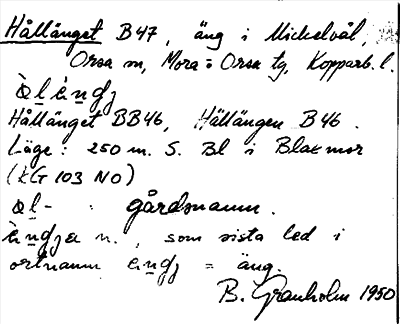 Hållänget B47, äng i Mickelvål,
Orsa sn, Mora o Orsa tg, Kopparb. l.
Hållänget BB46, Hållängen B46.
Läge: 250 m. S. Bl i Blaxmor
(EG 103 NO)
gårdsnamn.
n., som sista led i
ortnamn = äng.
B. Granholm 1950